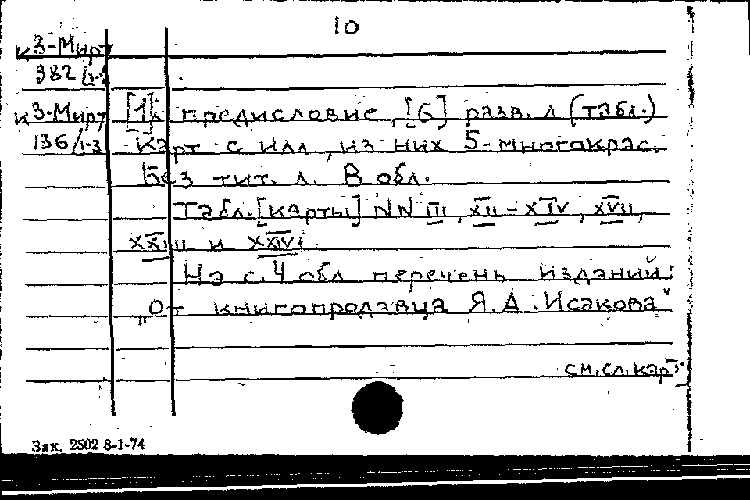 10
К3-Мирт
382/1-2
К3-Мирт [1]л. предисловие, [6] разв. л (табл.)
136/1-3 карт с илл, из них 5-многокрас.
Без тит. л. В обл.
Табл.[карты] NN III, XII-XIV, XVII,
XXIII и XXIVI
На с.4 обл перечень изданий:
„От книгопродавца Я.А.Исакова"
см.сл.карт.
Зак. 2502 8-1-74